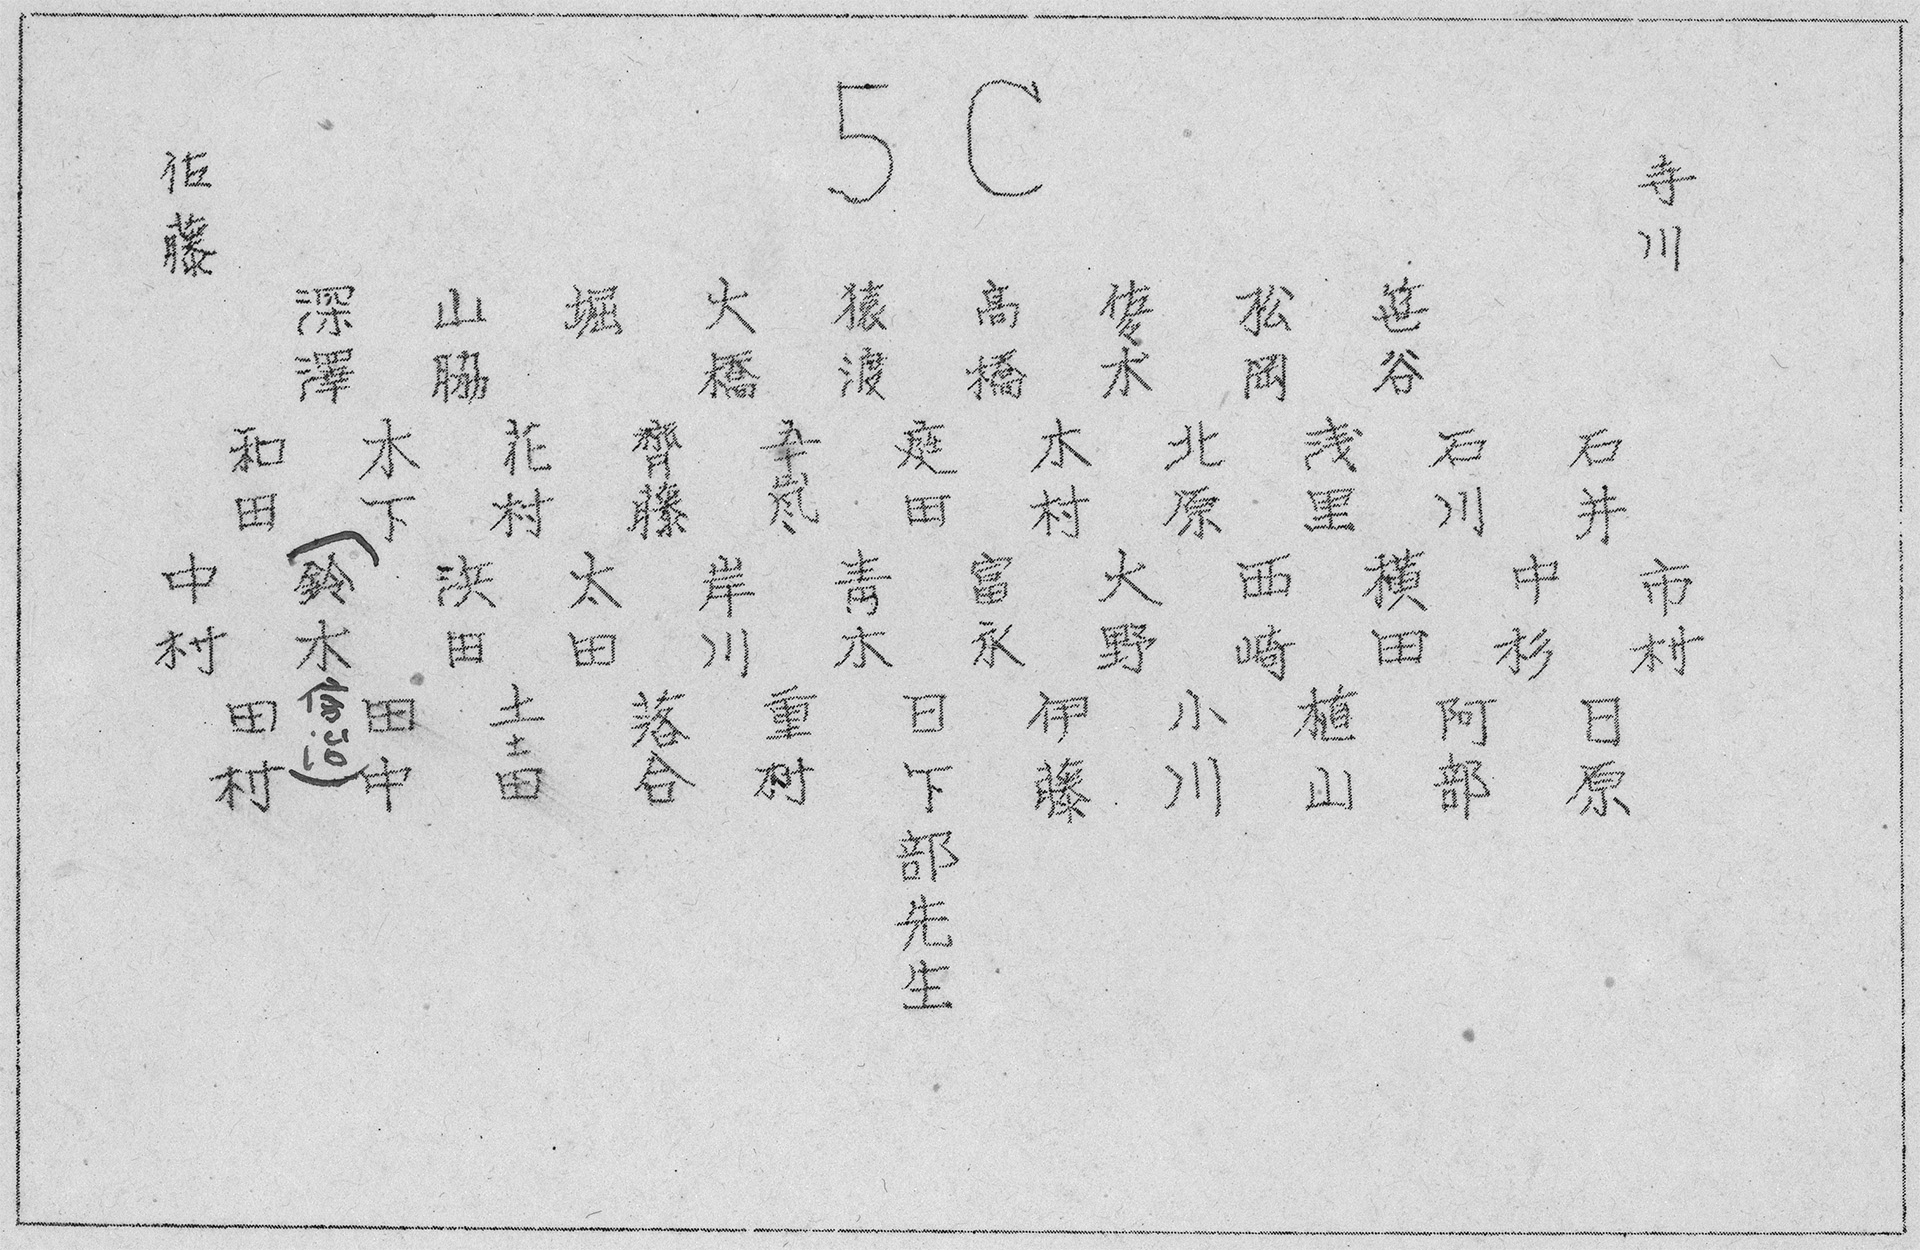 5C
佐藤
寺川
深澤
山脇
堀
大橋
猿渡
高橋
松岡
笹谷
和田
木下
花村
齊藤
五十嵐
庭田
木村
北原
浅里
石川
石井
中村
(鈴木
浜田
太田
岸川
青木
富永
大野
西崎
横田
中杉
市村
田村
田中
土田
落合
重樹
日下部先生
伊藤
小川
植山
阿部
日原